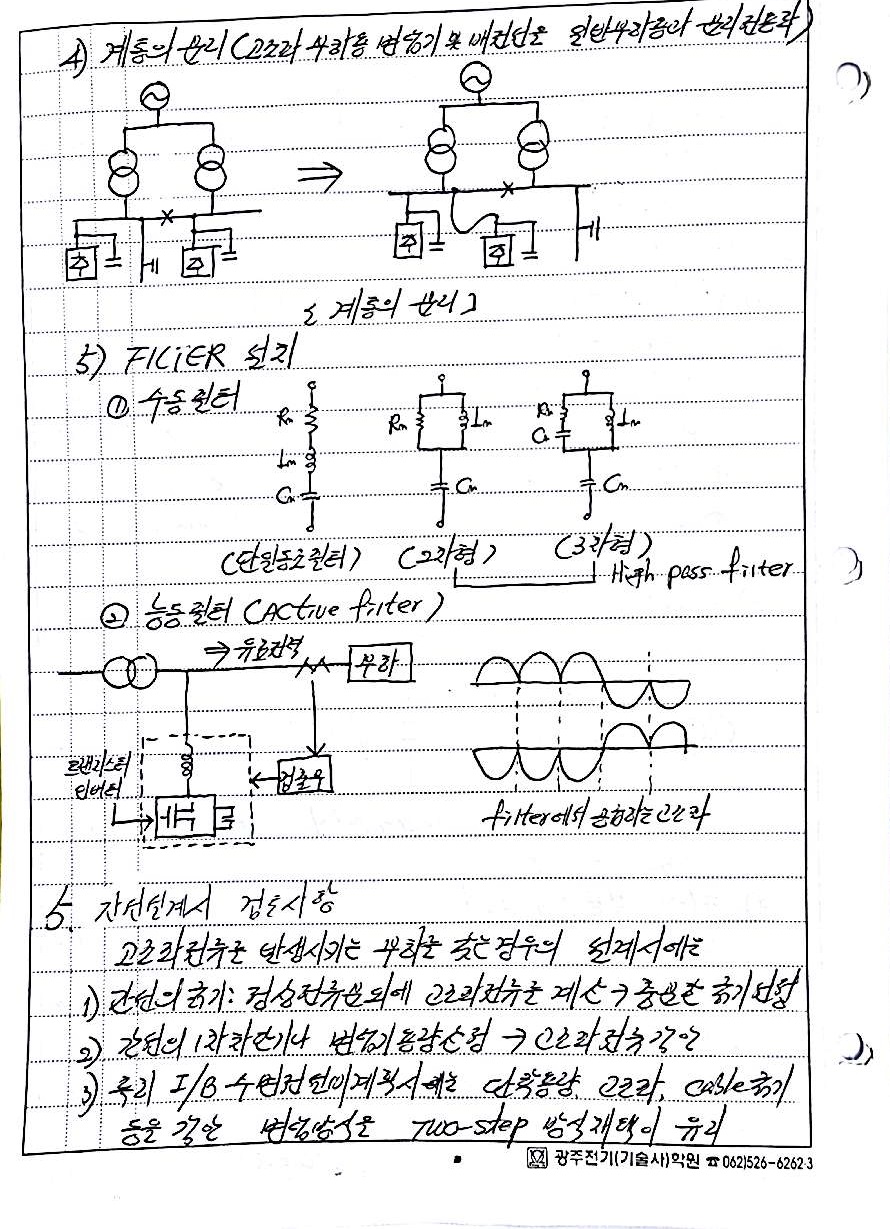 4) 계통의 분리 (고조파 부하용 변압기 및 배전선을 일반부하용과 분리전용화)
주 주 주 주
[ 계통의 분리 ]
5) FILTER 설치
① 수동필터
Rn Rn Ln Rn Ln
Ln C
Cn Cn Cn
(단일동조필터) (2차형) (3차형)
High pass filter
② 능동필터 (Active filter)
⇒ 유효전력
부하
트랜지스터
인버터
검출부
filter에서 공급하는 고조파
5. 간선설계시 검토사항
고조파전류를 발생시키는 부하를 갖는경우의 설계시에는
1) 간선의 굵기: 정상전류분외에 고조파전류를 계산 → 충분한 굵기선정
2) 간선의 1차차단기나 변압기용량선정 → 고조파전류감안
3) 특히 I/B 수변전설비계획시에는 단락용량, 고조파, cable굵기
등을 감안 변압방식을 Two-step 방식채택이 유리
광주전기(기술사)학원 ☎ 062)526-6262·3